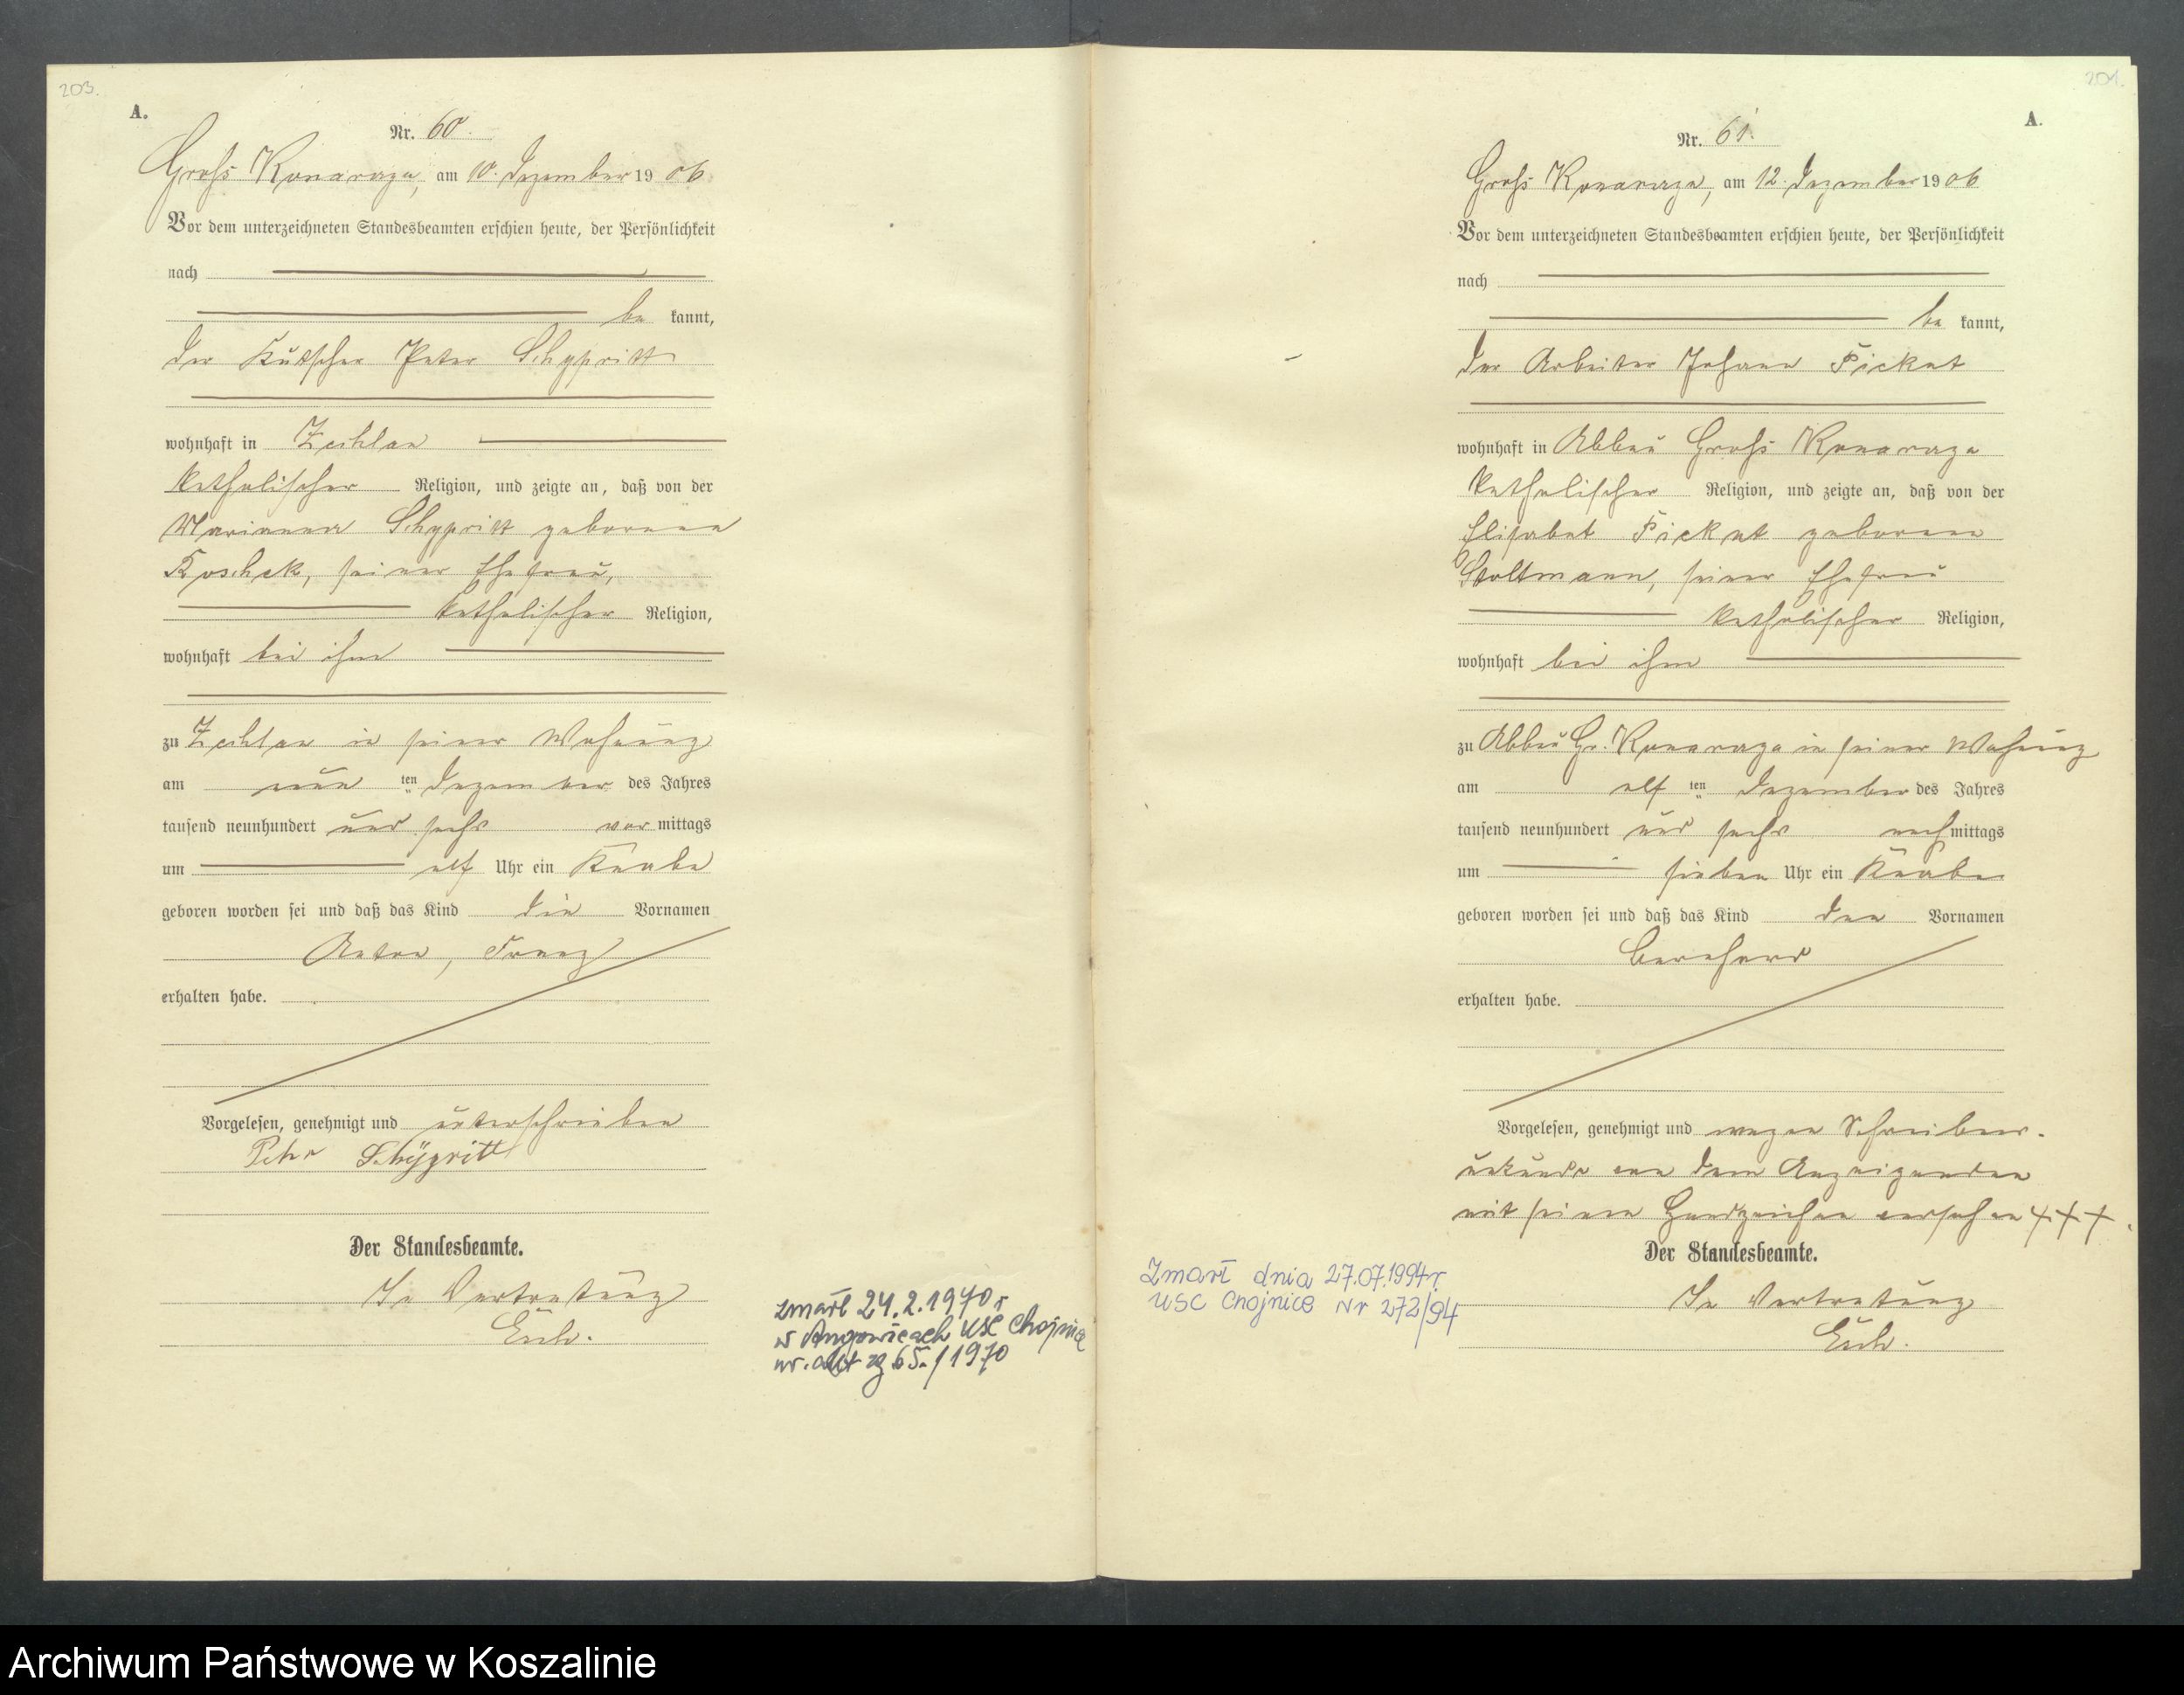 203.
A.
Nr. 60.
Groß Konarczyn, am 10. Dezember 19 06
Vor dem unterzeichneten Standesbeamten erschien heute, der Persönlichkeit
nach
be kannt,
der Kutscher Peter Schypritt
wohnhaft in Zechlau
katholischer Religion, und zeigte an, daß von der
Marianna Schypritt geborenen
Koschek, seiner Ehefrau,
katholischer Religion,
wohnhaft bei ihm
zu Zechlau in seiner Wohnung
am neun ten Dezember des Jahres
tausend neunhundert und sechs vor mittags
um elf Uhr ein Knabe
geboren worden sei und daß das Kind die Vornamen
Anton, Franz
erhalten habe.
Vorgelesen, genehmigt und unterschrieben
Peter Schypritt
Der Standesbeamte.
In Vertretung
zmarł 24.2.1970 r
w Angowicach USC Chojnice
nr. akt zg 65./1970
201.
A.
Nr. 61.
Groß Konarczyn, am 12. Dezember 19 06
Vor dem unterzeichneten Standesbeamten erschien heute, der Persönlichkeit
nach
be kannt,
der Arbeiter Johann Pickut
wohnhaft in Abbau Groß Konarczyn
katholischer Religion, und zeigte an, daß von der
Elisabet Pickut geborenen
Stoltmann, seiner Ehefrau
katholischer Religion,
wohnhaft bei ihm
zu Abbau Gr. Konarczyn in seiner Wohnung
am elf ten Dezember des Jahres
tausend neunhundert und sechs nach mittags
um sieben Uhr ein Knabe
geboren worden sei und daß das Kind den Vornamen
Bernhard
erhalten habe.
Vorgelesen, genehmigt und wegen Schreibens-
unkunde von dem Anzeigenden
mit seinem Handzeichen versehen +++.
Der Standesbeamte.
In Vertretung
Zmarł dnia 27.07.1994 r.
USC Chojnice Nr 272/94
Archiwum Państwowe w Koszalinie